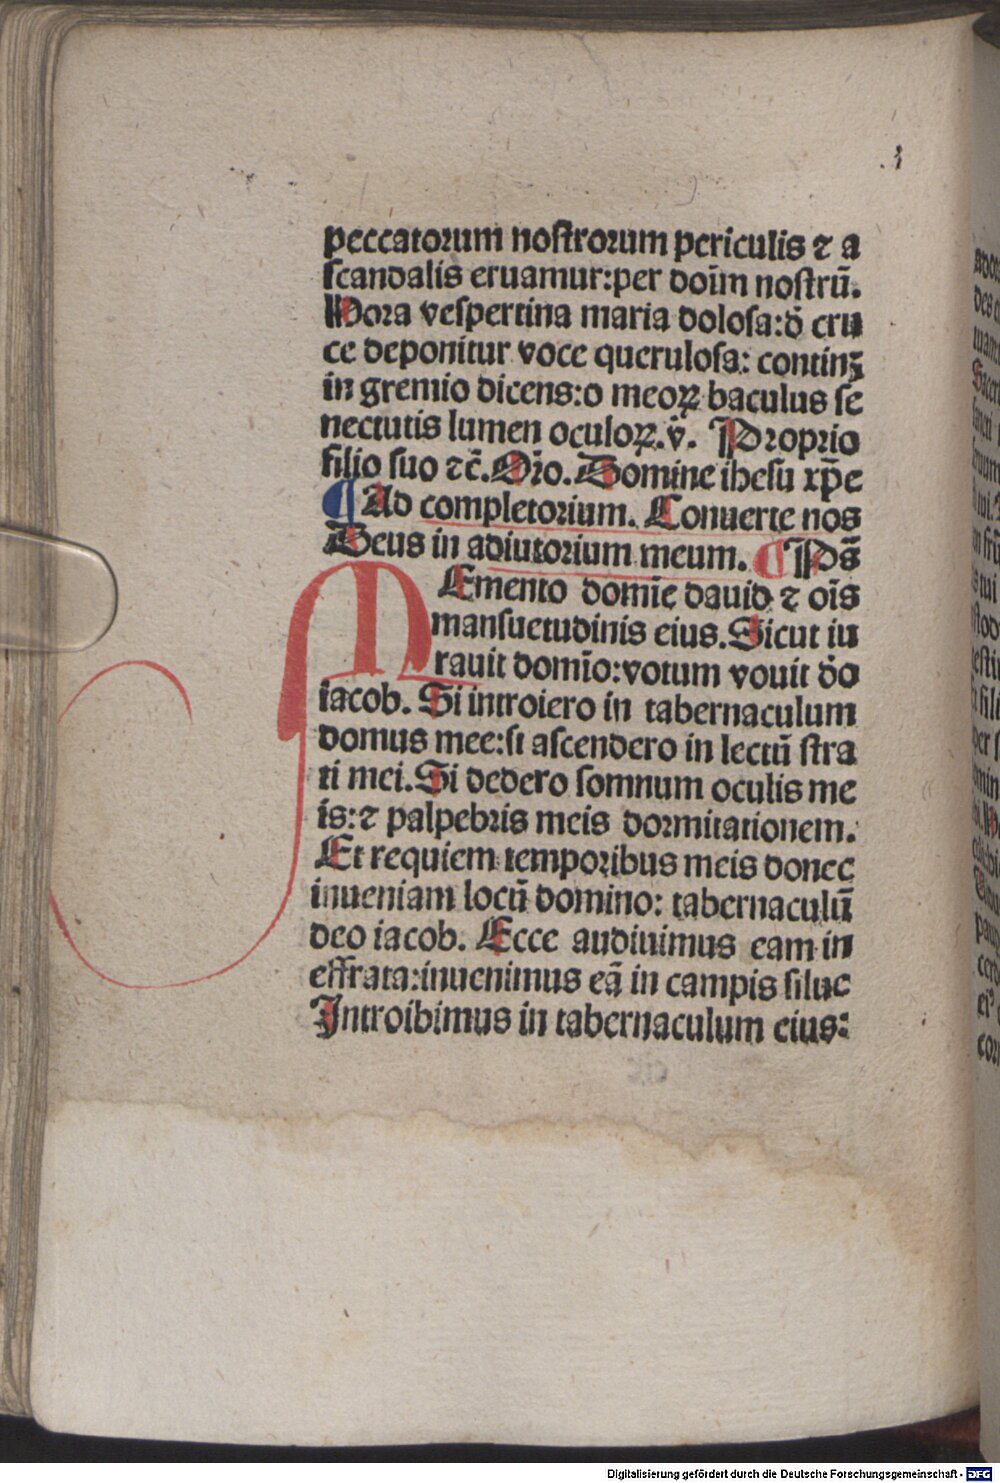 peccatorum nostrorum periculis ⁊ a
scandalis eruamur:per doīm nostrū.
Hora vespertina maria dolosa:d̄ cru
ce deponitur voce querulosa: continꝫ
in gremio dicens:o meoꝝ baculus se
nectutis lumen oculoꝝ.v̄. Proprio
filio suo ⁊c̄.Or̄o. Domine ihesu xp̄e
¶ Ad completorium. Conuerte nos
Deus in adiutorium meum. ¶ Ps̄
MEmento domīe dauid ⁊ oīs
mansuetudinis eius.Sicut iu
rauit domīo:votum vouit d̄o
iacob. Si introiero in tabernaculum
domus mee:si ascendero in lectū stra
ti mei.Si dedero somnum oculis me
is:⁊ palpebris meis dormitationem.
Et requiem temporibus meis donec
inueniam locū domino: tabernaculū
deo iacob. Ecce audiuimus eam in
effrata:inuenimus eā in campis silue
Introibimus in tabernaculum eius:
Digitalisierung gefördert durch die Deutsche Forschungsgemeinschaft - DFG